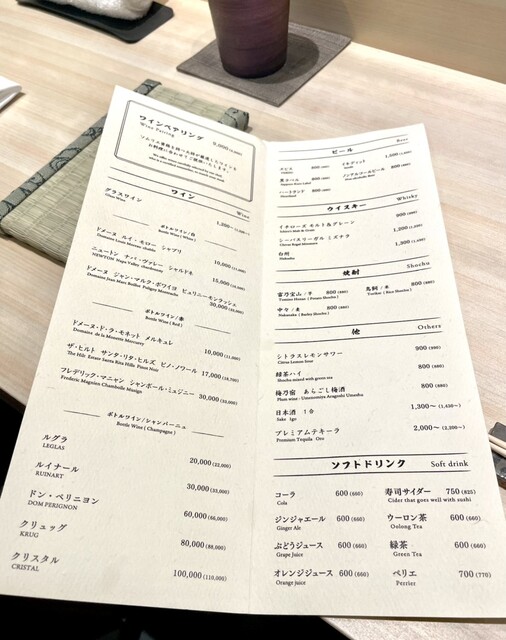 ワインペアリング
Wine Pairing
8,000 (8,800)
ソムリエ資格を持つ大将が厳選したワインを
お料理に合わせてご提供いたします。
ワイン
Wine
グラスワイン
Glass Wine
1,200~
ボトルワイン/白
Bottle Wine ( White )
ドメーヌ ルイ・モロー シャブリ
Domaine Louis Moreau chablis
10,000 (11,000)
ニュートン ナパ・ヴァレー シャルドネ
NEWTON Napa Valley chardonnay
15,000
ドメーヌ ジャン・マルク・ボワイヨ ピュリニーモンラッシェ
Domaine Jean Marc Boillot Puligny Montrachet
30,000 (33,000)
ボトルワイン/赤
Bottle Wine ( Red )
ドメーヌ・ド・ラ・モネット メルキュレ
Domaine de la Monette Mercurey
10,000 (11,000)
ザ・ヒルト サンタ・リタ・ヒルズ ピノ・ノワール
The Hilt Estate Santa Rita Hills Pinot Noir
17,000 (18,700)
フレデリック・マニャン シャンボール・ミュジニー
Frederic Magnien Chambolle Musigny
30,000 (33,000)
ボトルワイン/シャンパーニュ
Bottle Wine ( Champagne )
ルグラ
LEGLAS
20,000 (22,000)
ルイナール
RUINART
30,000 (33,000)
ドン・ペリニヨン
DOM PERIGNON
60,000 (66,000)
クリュッグ
KRUG
80,000 (88,000)
クリスタル
CRISTAL
100,000 (110,000)
ビール
Beer
ヱビス
800 (880)
黒ラベル
Sapporo Black Label
800 (880)
ハートランド
Heartland
800 (880)
ノンアルコールビール
Non-alcoholic Beer
800 (880)
ウイスキー
Whisky
イチローズ モルト&グレーン
Ichiro's Malt & Grain
900 (990)
シーバスリーガル ミズナラ
Chivas Regal Mizunara
1,200
白州
Hakushu
焼酎
Shochu
富乃宝山 / 芋
Tomino Hozan ( Potato Shochu )
800 (880)
鳥飼 / 米
Torikai ( Rice Shochu )
800 (880)
中々 / 麦
Nakanaka ( Barley Shochu )
800 (880)
他
Others
シトラスレモンサワー
Citrus Lemon Sour
900 (990)
緑茶ハイ
Shochu mixed with green tea
800 (880)
梅乃宿 あらごし梅酒
Plum wine - Umenoyado Aragoshi Umeshu
800 (880)
日本酒 1合
Sake 1go
1,300~ (1,430~)
プレミアムテキーラ
Premium Tequila Oro
2,000~ (2,200~)
ソフトドリンク
Soft drink
コーラ
Cola
600 (660)
寿司サイダー
Cider that goes well with sushi
750 (825)
ジンジャエール
Ginger Ale
600 (660)
ウーロン茶
Oolong Tea
600 (660)
ぶどうジュース
Grape Juice
600 (660)
緑茶
Green Tea
600 (660)
オレンジジュース
Orange juice
600 (660)
ペリエ
Perrier
700 (770)